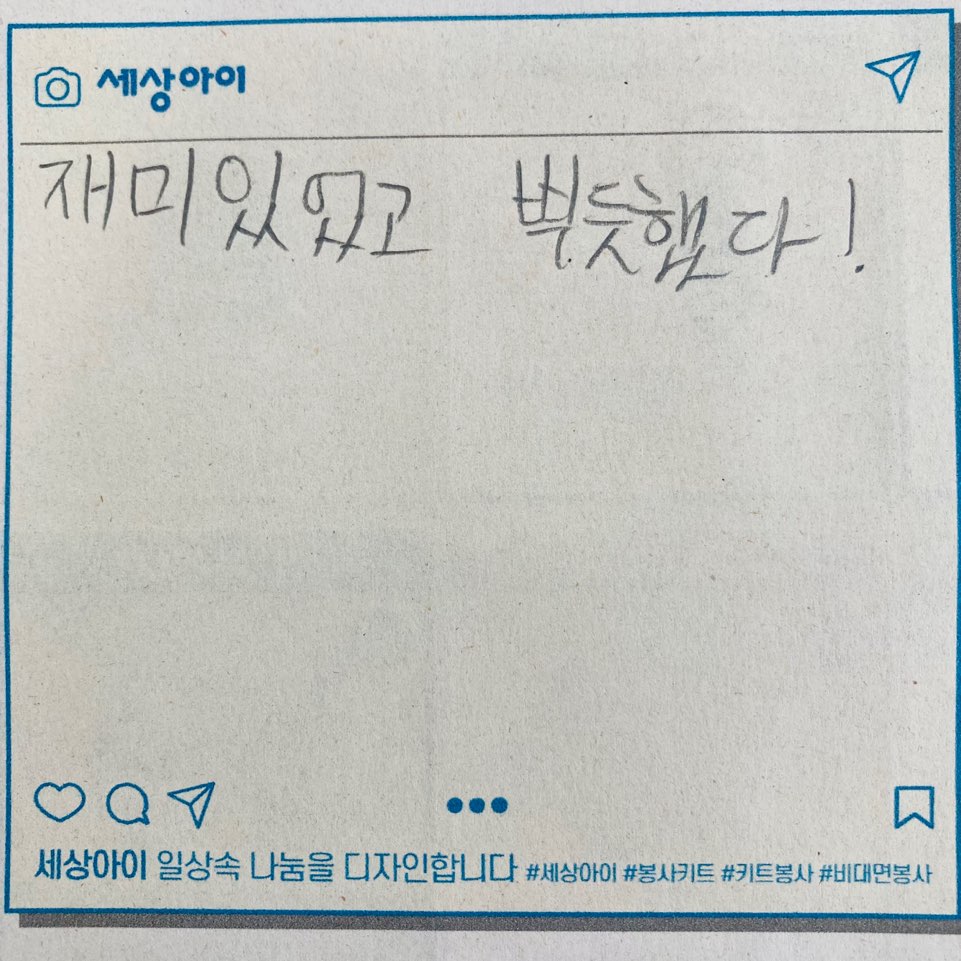 세상아이
재미있었고 뿌듯했다!
세상아이 일상속 나눔을 디자인합니다 #세상아이 #봉사키트 #키트봉사 #비대면봉사